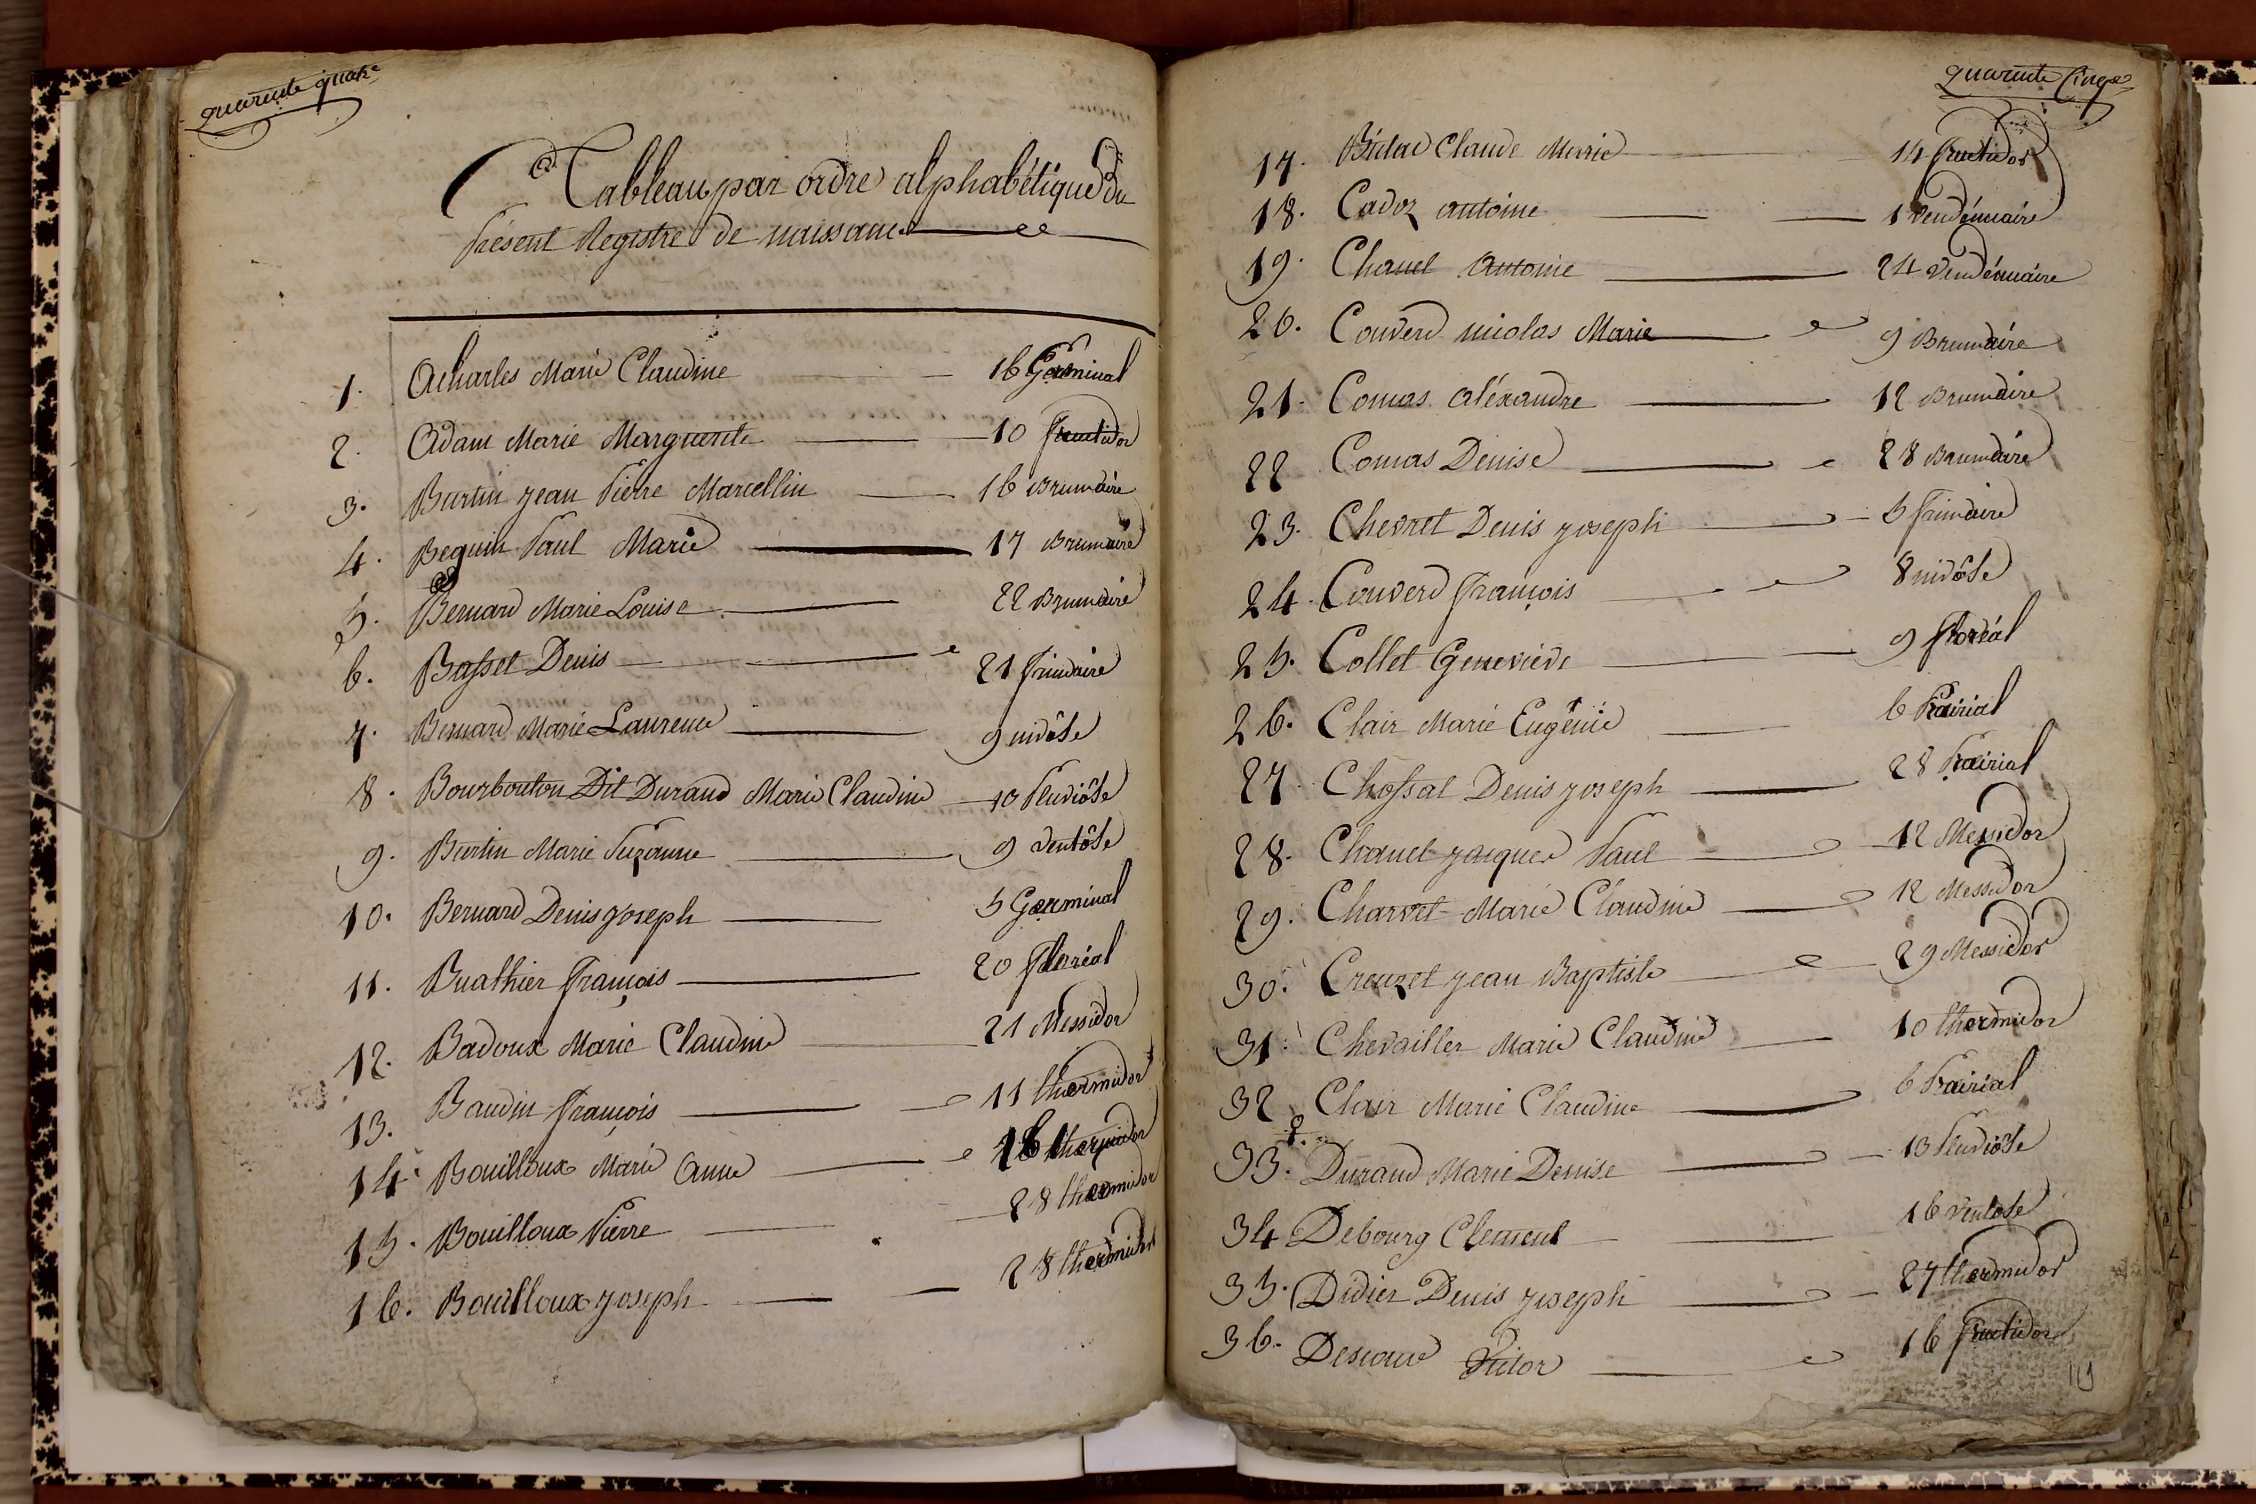 quarente quatre
Tableau par ordre alphabétique du
Présent Registre de naissance
1. Acharles Marie Claudine 16 Germinal
2. Adam Marie Marguerite 10 fructidor
3. Burtin jean Pierre Marcellin 16 Brumaire
4. Beguin Paul Marie 17 Brumaire
5. Bernard Marie Louise 22 Brumaire
6. Basset Denis 21 frimaire
7. Bernard Marie Laurence 9 nivôse
8. Bourbouton Dit Durand Marie Claudine 10 Pluviôse
9. Burtin Marie Suzanne 9 ventôse
10. Bernard Denis joseph 5 Germinal
11. Buathier françois 20 floréal
12. Badoux Marie Claudine 21 Messidor
13. Baudin françois 11 thermidor
14. Bouilloux Marie Anne 16 thermidor
15. Bouilloux Pierre 28 thermidor
16. Bouilloux joseph 28 thermidor
quarente Cinq
17. Claude Marie 14 fructidor
18. Cadoz antoine 1 vendémiaire
19. Chanel Antoine 24 vendémiaire
20. Couverd nicolas Marie 9 Brumaire
21. Comas aléxandre 12 Brumaire
22 Comas Denise 28 Brumaire
23. Chevret Denis joseph 5 frimaire
24. Couverd françois 8 nivôse
25. Collet Geneviève 9 floréal
26. Clair Marie Eugénie 6 Prairial
27. Chossat Denis joseph 28 Prairial
28. Chanel jacques Paul 12 Messidor
29. Charvet Marie Claudine 12 Messidor
30. Creuzet jean Baptiste 29 Messidor
31. Chevailler Marie Claudine 10 thermidor
32 Clair Marie Claudine 6 Prairial
33. Durand Marie Denise 13 Pluviôse
34 Debourg Clement 16 ventose
35. Didier Denis joseph 27 thermidor
36. Victor 16 fructidor